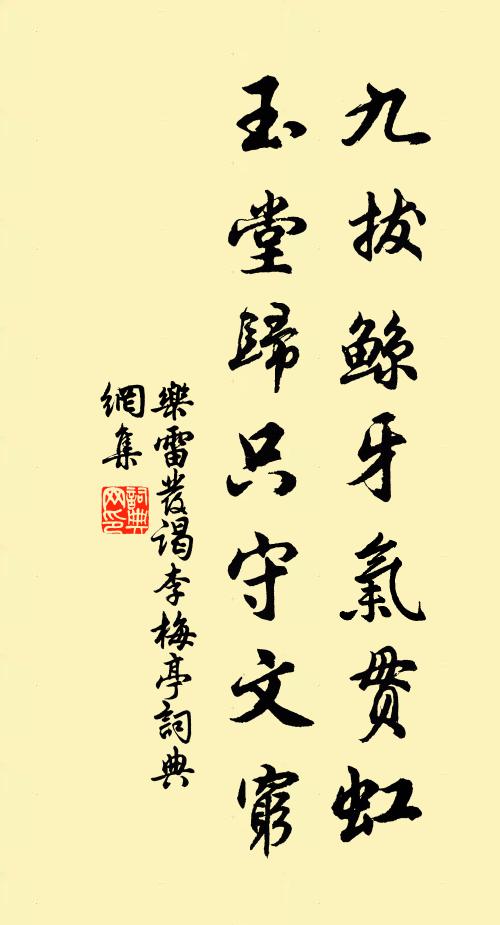 九拔鲸牙氣貫虹
玉堂歸只守文窮
樂雷發謁李梅亭詞典
網集
詞典
网印